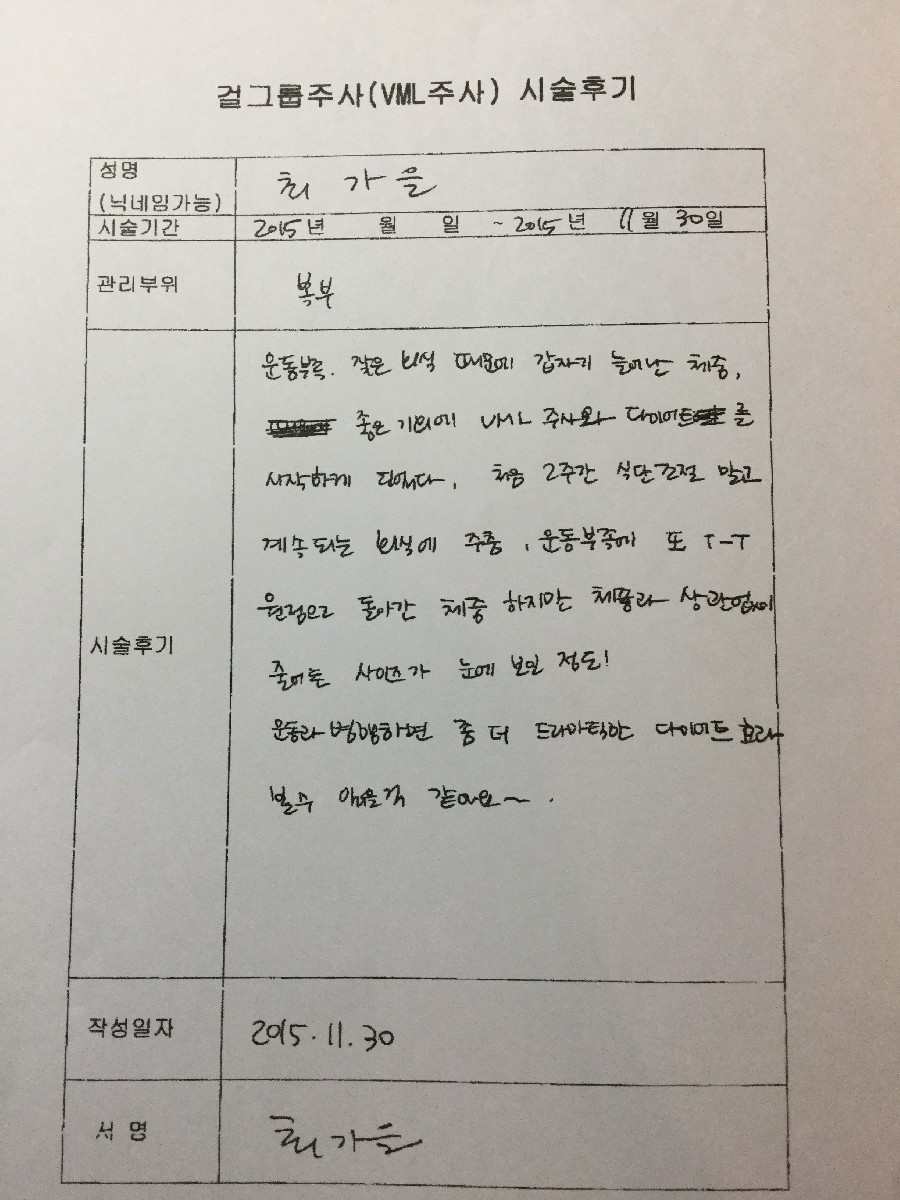 걸그룹주사(VML주사) 시술후기
성명
(닉네임가능)
최 가을
시술기간
2015년 월 일 ~ 2015년 11월 30일
관리부위
복부
시술후기
운동부족. 잦은 회식 때문에 갑자기 늘어난 체중,
좋은 기회에 VML 주사와 다이어트를
시작하게 되었다. 처음 2주간 식단조절 말고
계속되는 회식에 주춤, 운동부족에 또 ㅜㅡㅜ
원점으로 돌아간 체중 하지만 체중과 상관없이
줄어든 사이즈가 눈에 보일 정도!
운동과 병행하면 좀 더 드라마틱한 다이어트 효과
볼수 있을것 같아요~.
작성일자
2015.11.30
서 명
최가을